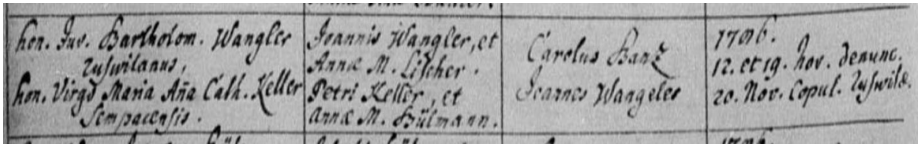 hon. Juv. Bartholom. Wangler
Rußwilanus,
hon. Virgo Maria Aña Cath. Keller
Sempacensis.
Joannis Wangler, et
Annæ M. Lischer.
Petri Keller, et
Annæ M. Bülmann.
Carolus Banz
Joannes Wangeler
1796.
12. et 19. Nov. denunc.
20. Nov. Copul. Rußwilæ.